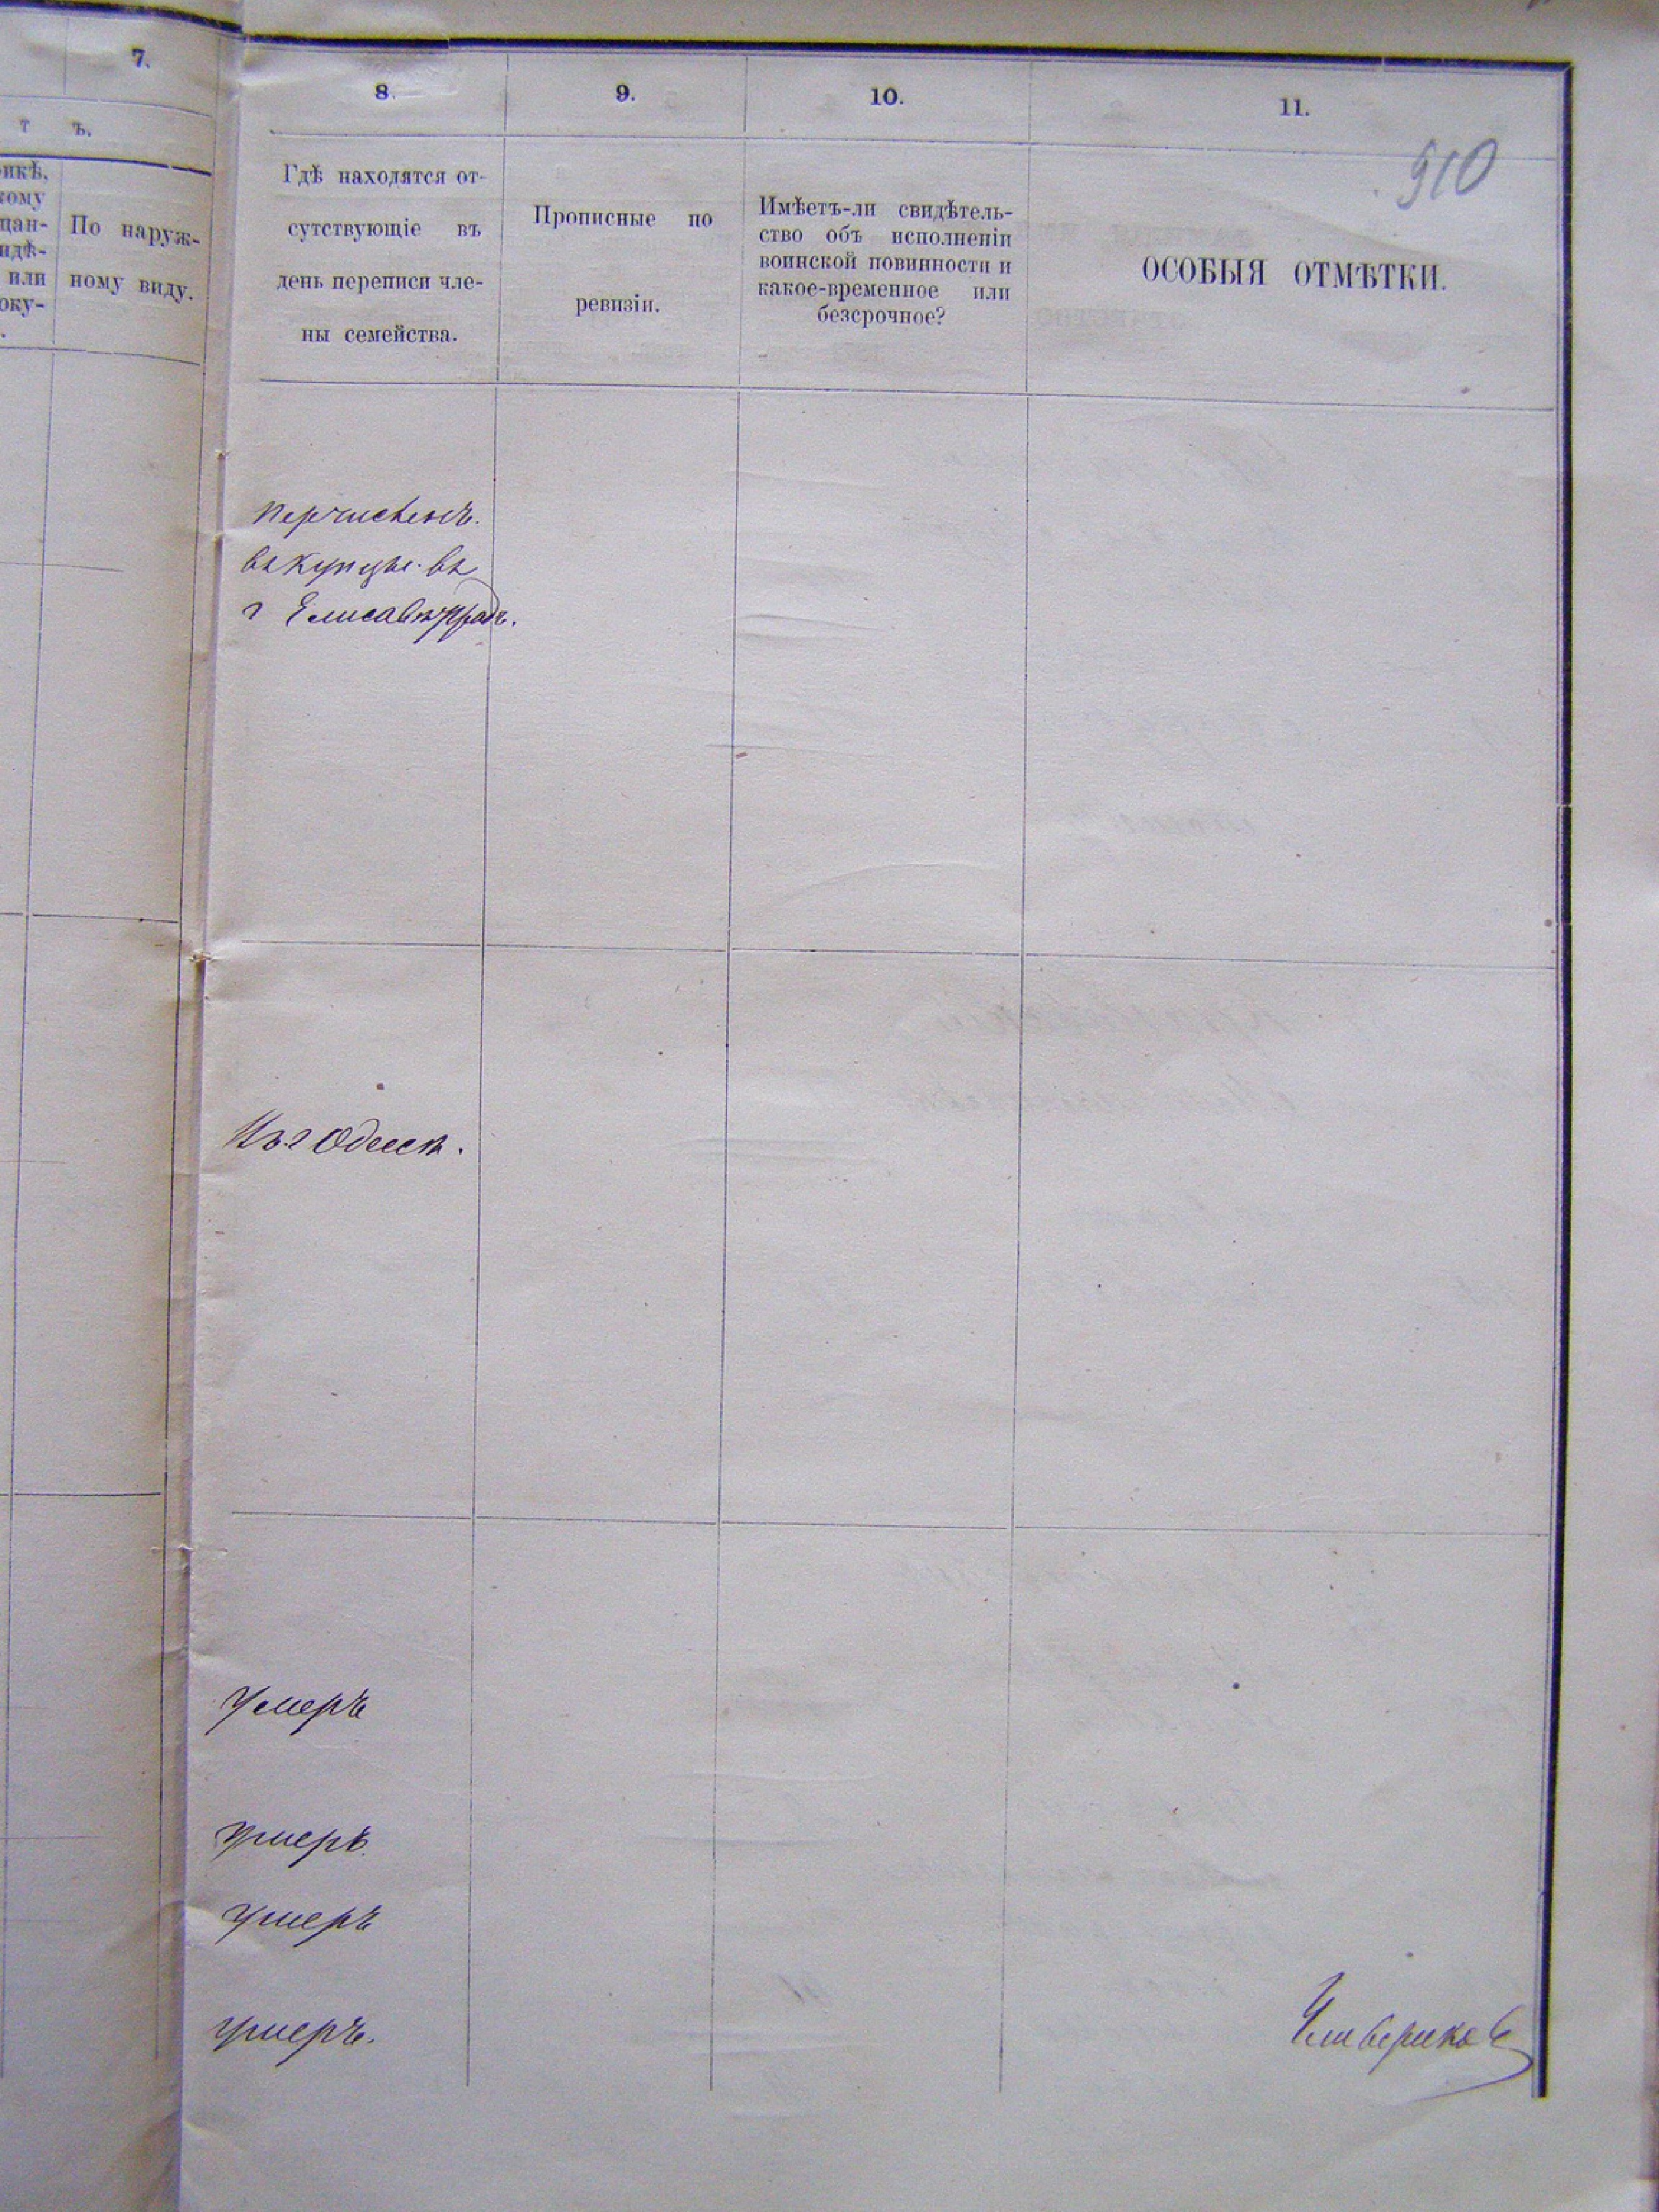 7.
т ъ.
По наруж-
ному виду.
или
8.
9.
10.
11.
910
Гдѣ находятся от-
сутствующіе въ
день переписи чле-
ны семейства.
Прописные по
ревизіи.
Имѣетъ-ли свидѣтель-
ство объ исполненіи
воинской повинности и
какое-временное или
безсрочное?
ОСОБЫЯ ОТМѢТКИ.
перчисленъ.
въ купцы въ
г Елисаветградъ.
Въ г Одессѣ.
умеръ
умеръ.
умеръ
умеръ.
Чивериковъ